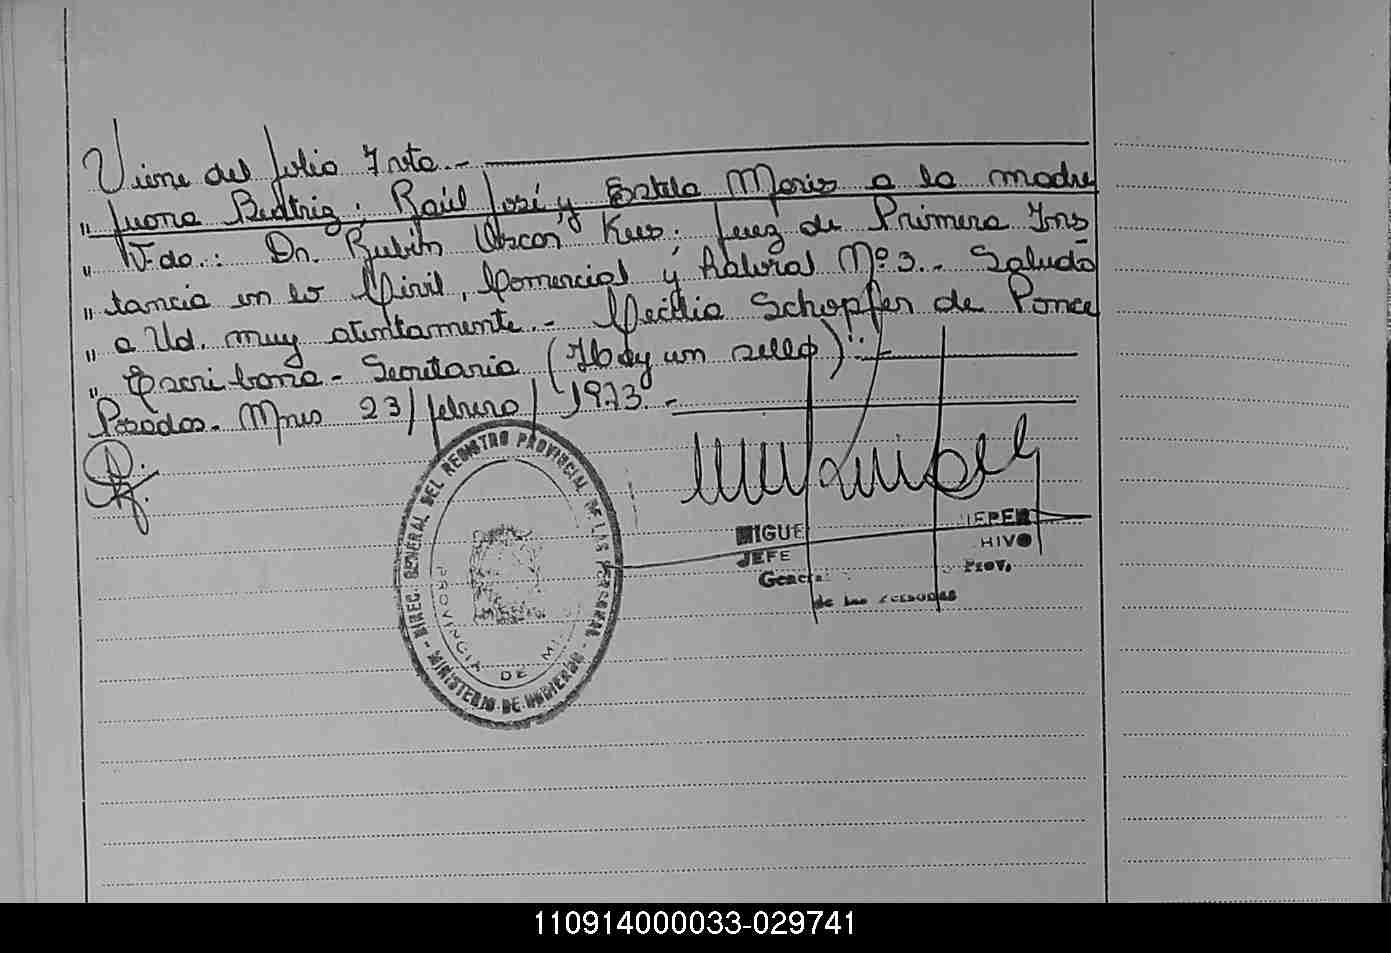 Viene del folio 7 vta.-
" Juana Beatriz; Raúl José y Estela Maris a la madre
" Fdo.: Dr. Rubén Oscar Juez de Primera Ins
" tancia en lo Civil, Comercial y Laboral Nº 3.- Saludo
" a Ud. muy atentamente.- Cecilia Schopfer de Ponce
" Escribana - Secretaria (Hay un sello)".-
Posadas. Mnes 23/febrero/1973.-
DIREC. GENERAL DEL REGISTRO PROVINCIAL DE LAS PERSONAS - MINISTERIO DE GOBIERNO -
PROVINCIA DE MI
MIGUE
JEFE HIVO
General Prov.
de las Personas
110914000033-029741